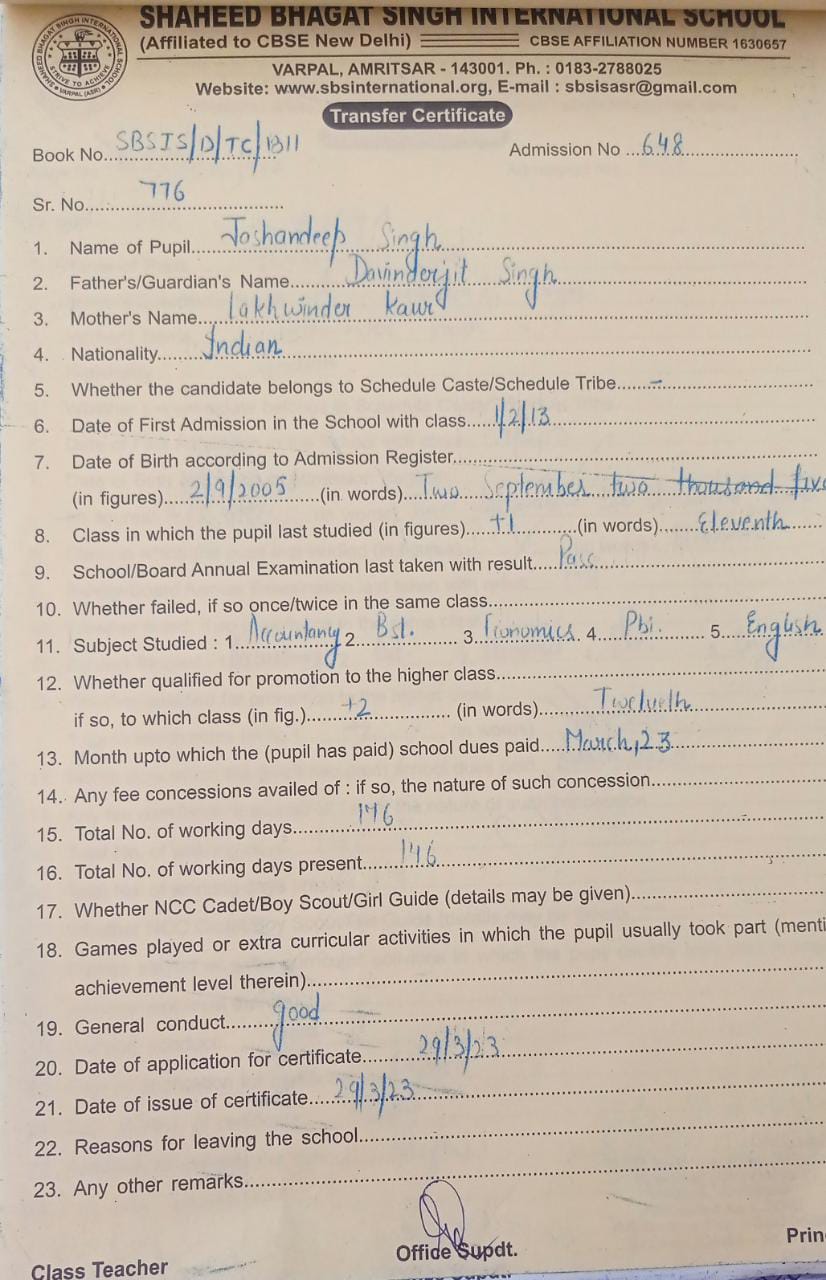 SHAHEED BHAGAT SINGH INTERNATIONAL SCHOOL
(Affiliated to CBSE New Delhi) CBSE AFFILIATION NUMBER 1630657
VARPAL, AMRITSAR - 143001. Ph. : 0183-2788025
Website: www.sbsinternational.org, E-mail : sbsisasr@gmail.com
SHAHEED BHAGAT SINGH INTERNATIONAL SCHOOL STRIVE TO ACHIEVE VARPAL (ASR)
Transfer Certificate
Book No. SBSIS/D/TC/1311 Admission No 648
Sr. No. 776
1. Name of Pupil Joshandeep Singh
2. Father's/Guardian's Name Davinderjit Singh
3. Mother's Name Lakhwinder Kaur
4. Nationality Indian
5. Whether the candidate belongs to Schedule Caste/Schedule Tribe –
6. Date of First Admission in the School with class 1/2/13
7. Date of Birth according to Admission Register
(in figures) 2/9/2005 (in words) Two September two thousand five
8. Class in which the pupil last studied (in figures) +1 (in words) Eleventh
9. School/Board Annual Examination last taken with result Pass
10. Whether failed, if so once/twice in the same class
11. Subject Studied : 1 Accountancy 2 Bst. 3 Economics 4 Pbi. 5 English
12. Whether qualified for promotion to the higher class
if so, to which class (in fig.) +2 (in words) Twelveth
13. Month upto which the (pupil has paid) school dues paid March,23
14. Any fee concessions availed of : if so, the nature of such concession
15. Total No. of working days 176
16. Total No. of working days present
17. Whether NCC Cadet/Boy Scout/Girl Guide (details may be given)
18. Games played or extra curricular activities in which the pupil usually took part (menti
achievement level therein)
19. General conduct good
20. Date of application for certificate 29/3/23
21. Date of issue of certificate 29/3/23
22. Reasons for leaving the school
23. Any other remarks
Class Teacher Office Supdt. Prin